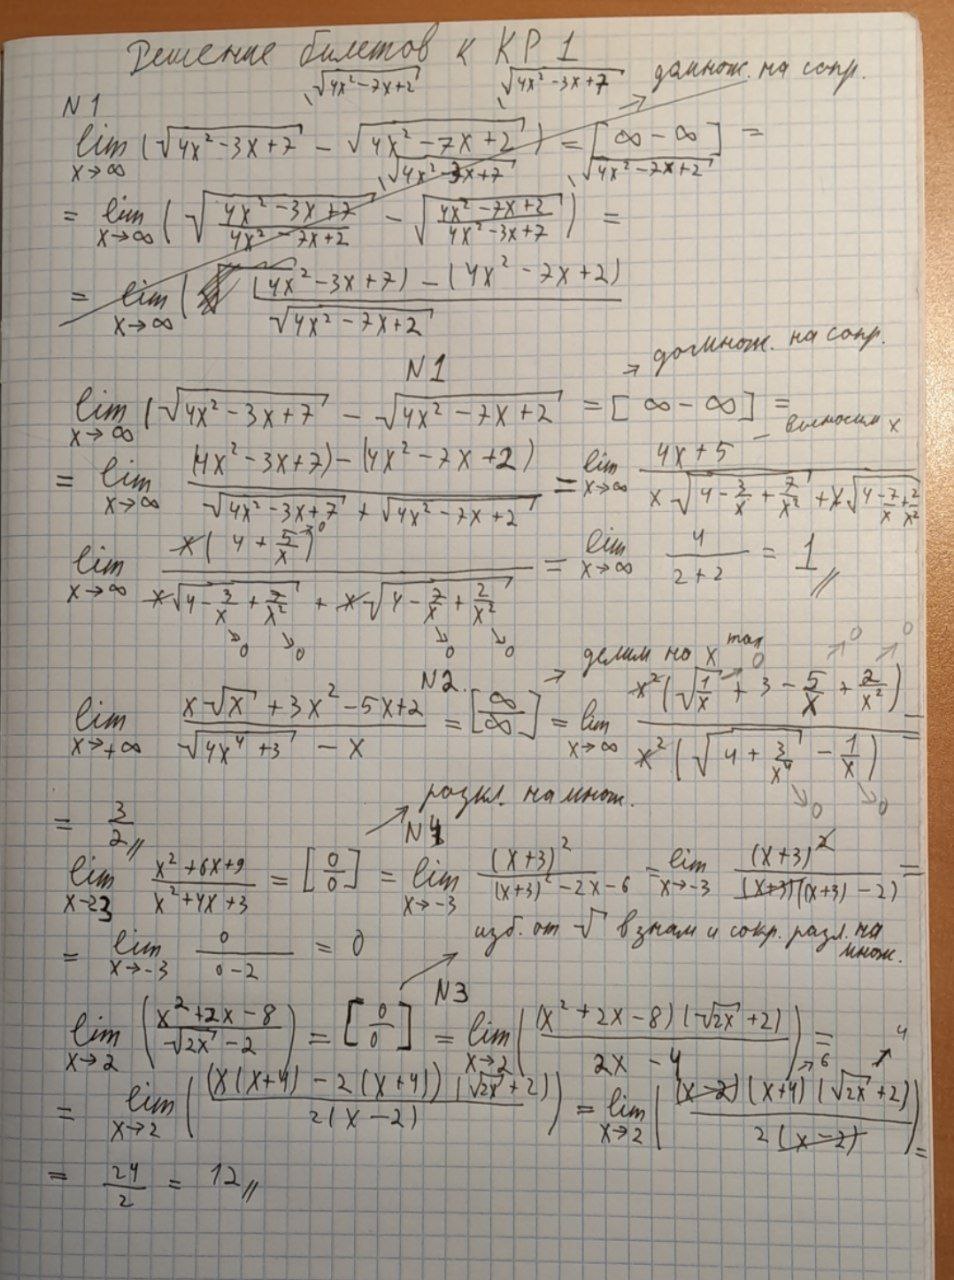 Решение билетов к КР 1
√(4x²-7x+2) √(4x²-3x+7) домнож. на сопр.
N1
lim x→∞ (√(4x²-3x+7) - √(4x²-7x+2)) = [∞-∞] =
√(4x²-3x+7) √(4x²-7x+2)
= lim x→∞ (√((4x²-3x+7)/(4x²-7x+2)) - √((4x²-7x+2)/(4x²-3x+7))) =
= lim x→∞ ( (4x²-3x+7) - (4x²-7x+2) / √(4x²-7x+2)
N1 → домнож. на сопр.
lim x→∞ (√(4x²-3x+7) - √(4x²-7x+2) = [∞-∞] =
= lim x→∞ ((4x²-3x+7)-(4x²-7x+2))/(√(4x²-3x+7) + √(4x²-7x+2)) = lim x→∞ (4x+5)/(x√(4-3/x+7/x²) + x√(4-7/x+2/x²)) - выносим x
lim x→∞ x(4+5/x)/(x√(4-3/x+7/x²) + x√(4-7/x+2/x²)) = lim x→∞ 4/(2+2) = 1 //
→0 →0 →0 →0 →0
N2. → делим на x^max
lim x→+∞ (x√x + 3x² - 5x + 2)/(√(4x⁴+3) - x) = [∞/∞] = lim x→∞ x²(√(1/x) + 3 - 5/x + 2/x²)/(x²(√(4+3/x⁴) - 1/x)) =
→0 →0 →0 →0 →0
= 3/2 //
N4 → разкл. на множ.
lim x→-3 (x²+6x+9)/(x²+4x+3) = [0/0] = lim x→-3 (x+3)²/((x+3)²-2x-6) = lim x→-3 (x+3)²/((x+3)((x+3)-2)) =
= lim x→-3 0/(0-2) = 0
N3 → изб. от √ в знам и сокр. разл. на множ.
lim x→2 ((x²+2x-8)/(√2x-2)) = [0/0] = lim x→2 ((x²+2x-8)(√2x+2)/(2x-4)) =
= lim x→2 ((x(x+4)-2(x+4))(√2x+2)/(2(x-2))) = lim x→2 ((x-2)(x+4)(√2x+2)/(2(x-2))) =
→6 →4
= 24/2 = 12 //